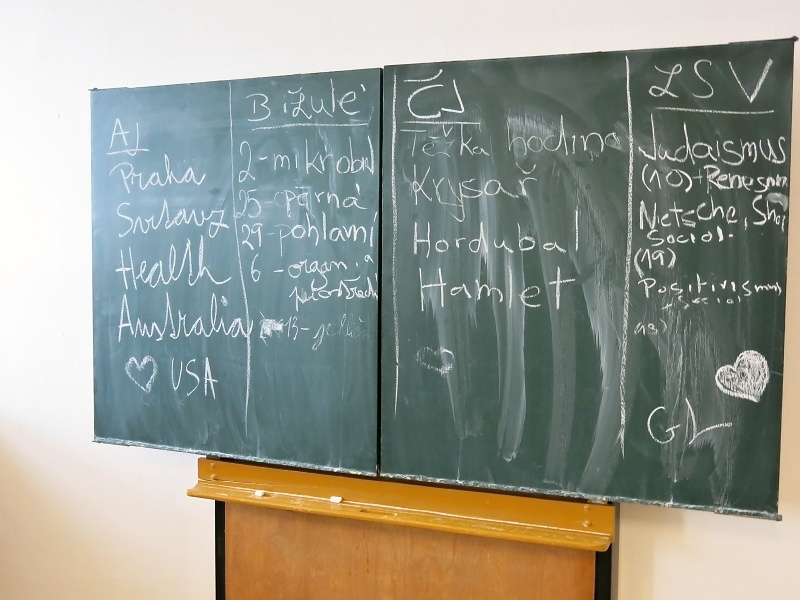 AJ
Praha
Svitavy
Health
Australia
USA
Bižule
2-mikrobi
25-párna
29-pohlavní
6 - organ. a
prostředí
13-
ČJ
Těžká hodina
Krysař
Hordubal
Hamlet
ZSV
Judaismus
(10)+Renesan
Nietsche, Sho
Sociol.
(19)
Positivismus
sociol
13)
GL